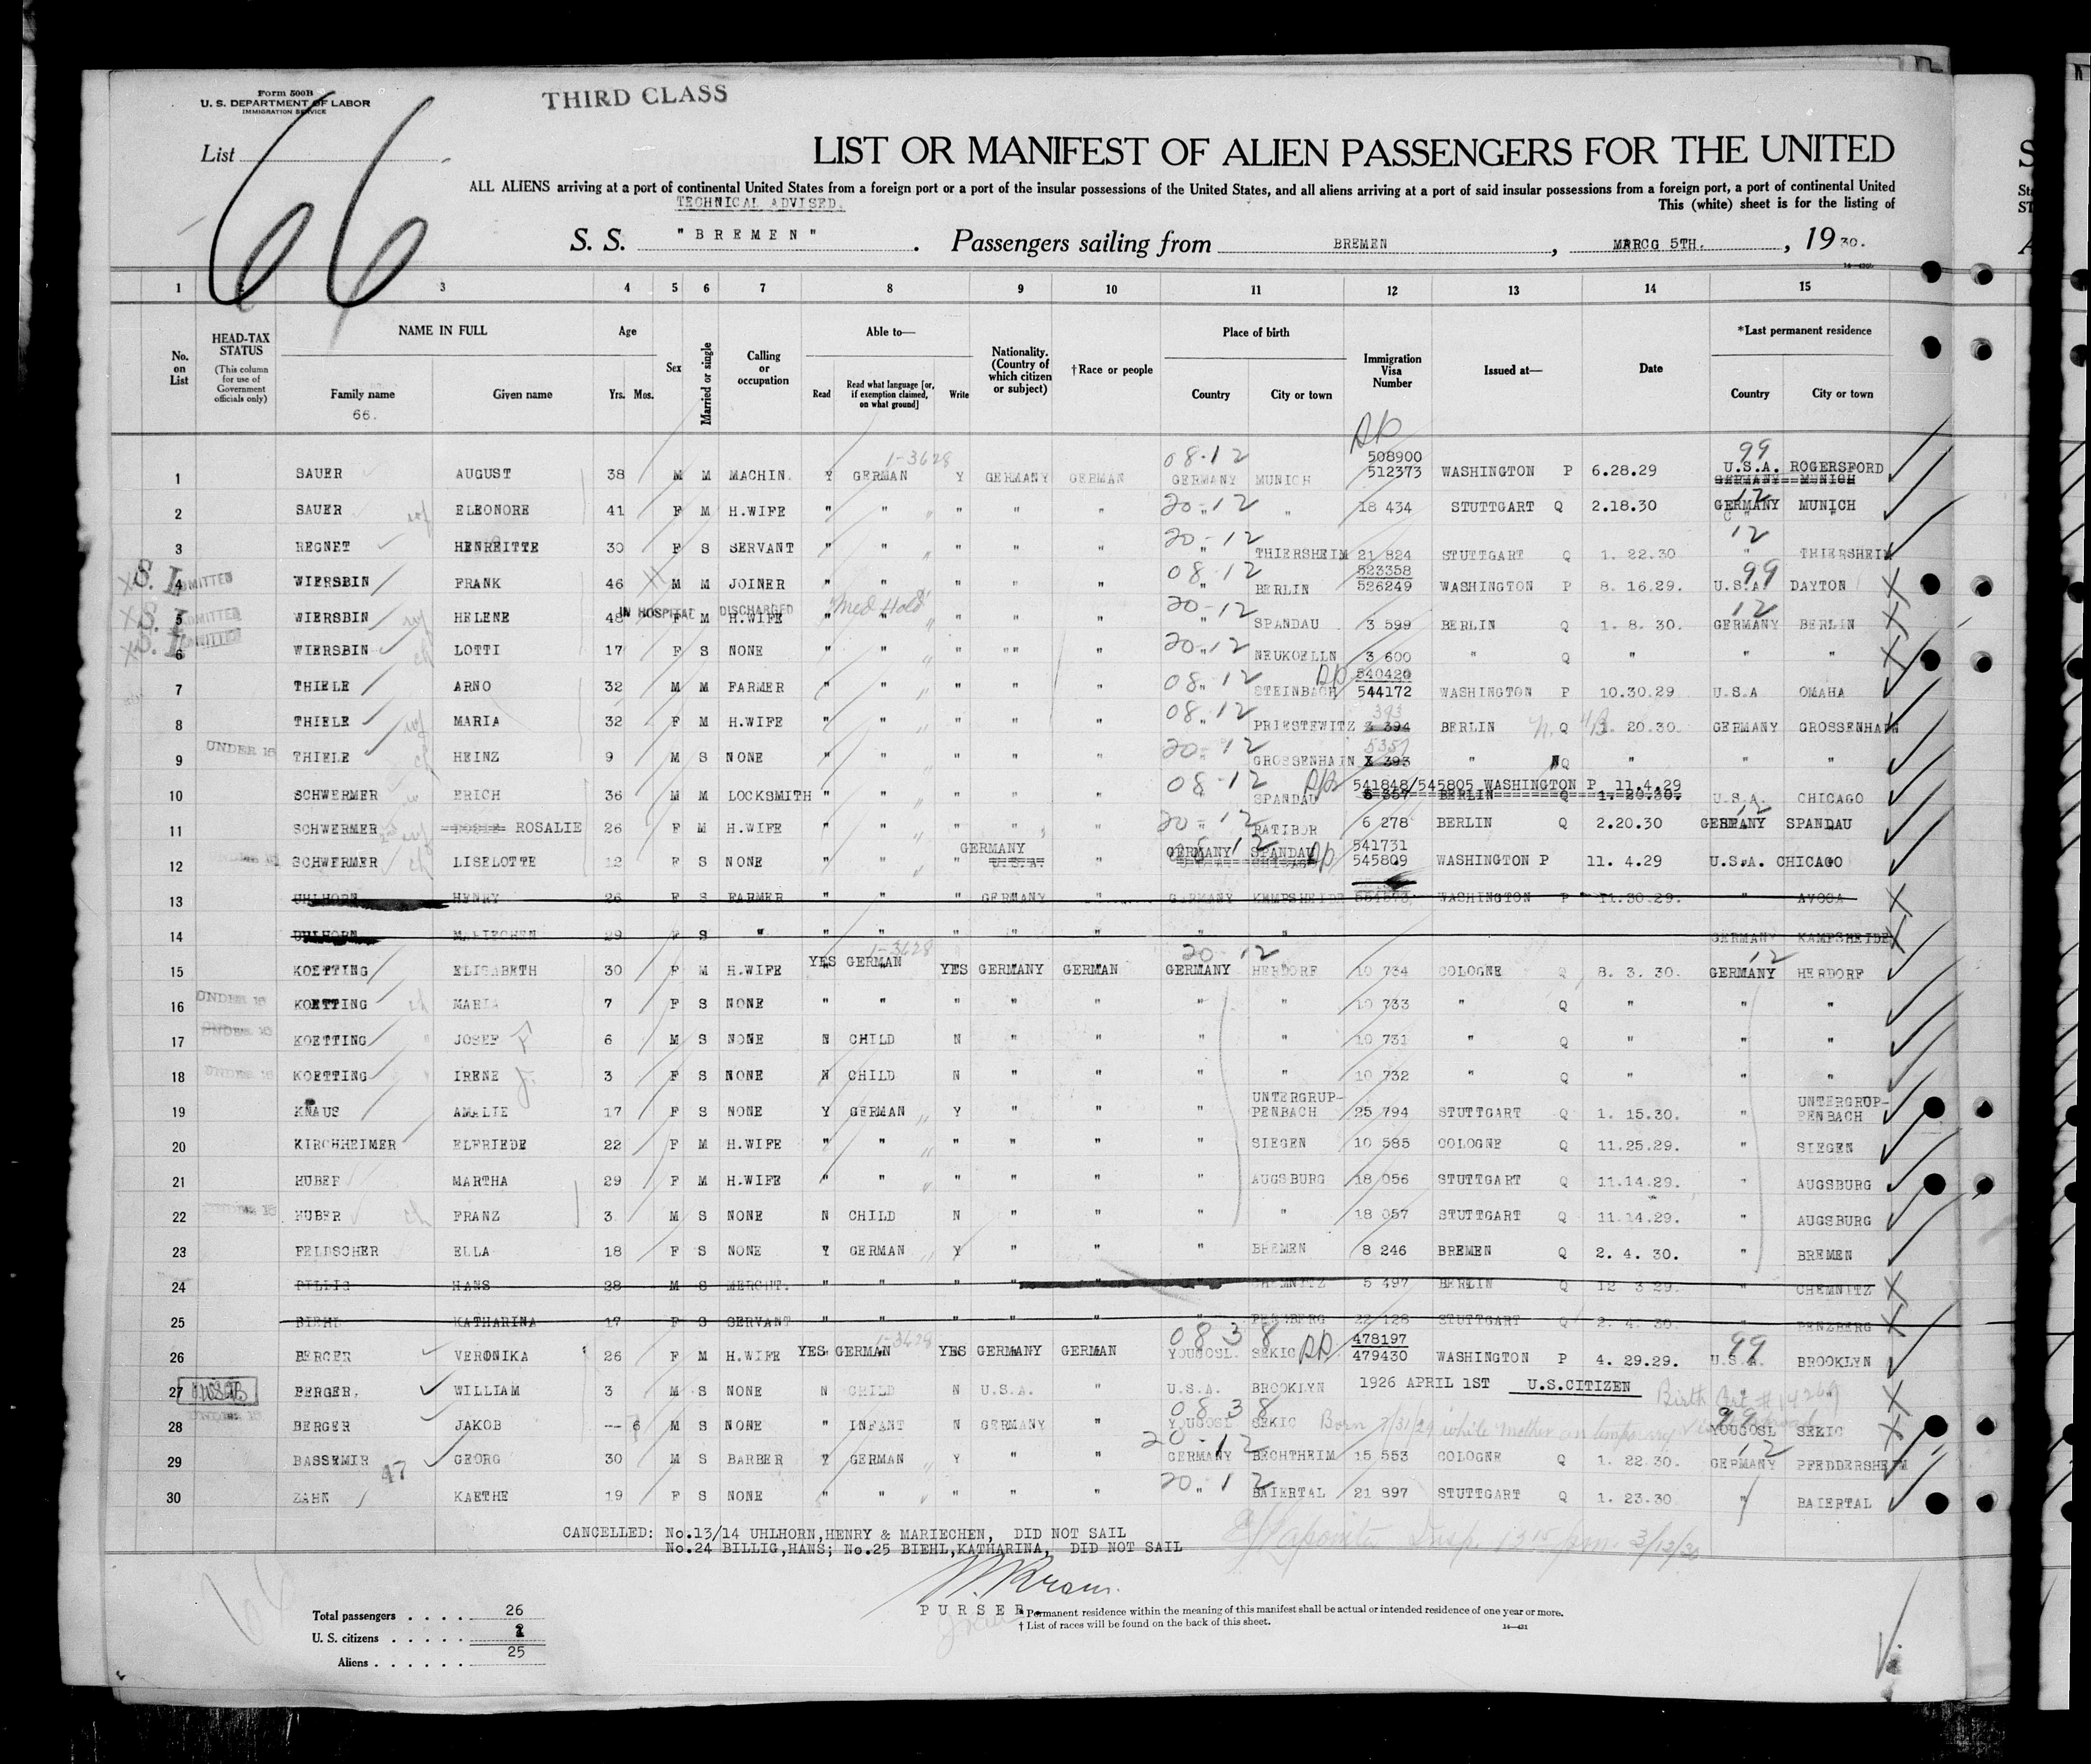 Form 500B
U. S. DEPARTMENT OF LABOR
IMMIGRATION SERVICE
THIRD CLASS
List
66
LIST OR MANIFEST OF ALIEN PASSENGERS FOR THE UNITED
ALL ALIENS arriving at a port of continental United States from a foreign port or a port of the insular possessions of the United States, and all aliens arriving at a port of said insular possessions from a foreign port, a port of continental United
TECHNICAL ADVISED.
This (white) sheet is for the listing of
S. S. " B R E M E N " . Passengers sailing from BREMEN , MARCG 5TH. , 19 30.
1 3 4 5 6 7 8 9 10 11 12 13 14 15
No. on List
HEAD-TAX STATUS (This column for use of Government officials only)
NAME IN FULL
Family name
66.
Given name
Age
Yrs. Mos.
Sex
Married or single
Calling or occupation
Able to—
Read
Read what language [or, if exemption claimed, on what ground]
Write
Nationality. (Country of which citizen or subject)
†Race or people
Place of birth
Country
City or town
Immigration Visa Number
Issued at—
Date
*Last permanent residence
Country
City or town
1 SAUER AUGUST 38 M M MACHIN. Y GERMAN 1-3628 Y GERMANY GERMAN 08-12 GERMANY MUNICH 508900 512373 WASHINGTON P 6.28.29 99 U.S.A. ROGERSFORD GERMANY MUNICH
2 SAUER wf ELEONORE 41 F M H.WIFE " " " " " 20-12 " " 18 434 STUTTGART Q 2.18.30 12 GERMANY MUNICH
3 REGNET HENREITTE 30 F S SERVANT " " " " " 20-12 " THIERSHEIM 21 824 STUTTGART Q 1. 22.30 12 " THIERSHEIM
S. I. ADMITTED 4 WIERSBIN FRANK 46 M M JOINER " " " " " 08-12 " BERLIN 523358 526249 WASHINGTON P 8. 16.29. 99 U.S.A DAYTON X
S. I. ADMITTED 5 WIERSBIN HELENE 48 IN HOSPITAL DISCHARGED Med Hold F M H.WIFE " " " " " 20-12 " SPANDAU 3 599 BERLIN Q 1. 8. 30. 12 GERMANY BERLIN X
S. I. ADMITTED 6 WIERSBIN ch LOTTI 17 F S NONE " " " "" " 20-12 " NEUKOELLN 3 600 " Q " " " X
7 THIELE ARNO 32 M M FARMER " " " " " 08-12 " STEINBACH 540420 544172 WASHINGTON P 10.30.29 U.S.A OMAHA
8 THIELE wf MARIA 32 F M H.WIFE " " " " " 08-12 " PRIESTEWITZ 393 3 394 BERLIN Q 1. 20.30. GERMANY GROSSENHAIN
UNDER 16 9 THIELE ch HEINZ 9 M S NONE " " " " " 20-12 GROSSENHAIN 5357 393 " NQ " " "
10 SCHWERMER ERICH 36 M M LOCKSMITH " " " " " 08-12 SPANDAU 541848/545805 WASHINGTON P 11.4.29 6 357 BERLIN Q 1. 20.30. U.S.A. CHICAGO
11 SCHWERMER ROSALIE 26 F M H.WIFE " " " " " 20-12 " RATIBOR 6 278 BERLIN Q 2.20.30 12 GERMANY SPANDAU
12 SCHWERMER ch LISELOTTE 12 F S NONE " " " GERMANY U.S.A. " GERMANY SPANDAU 541731 545809 WASHINGTON P 11. 4.29 U.S.A. CHICAGO
13 UHLHORN HENRY 26 F S FARMER " " " GERMANY " GERMANY KEMPSHEIDE WASHINGTON P 11.30.29. " AVOCA X
14 UHLHORN MARIECHEN 29 F S " " " " " " " " GERMANY KAMPSHEIDE X
15 KOETTING ELISABETH 30 F M H.WIFE YES GERMAN 1-3628 YES GERMANY GERMAN 20-12 GERMANY HERDORF 10 734 COLOGNE Q 8. 3. 30. 12 GERMANY HERDORF
UNDER 16 16 KOETTING ch MARIA 7 F S NONE " " " " " " " 10 733 " Q " " "
UNDER 16 17 KOETTING JOSEF 6 M S NONE N CHILD N " " " " 10 731 " Q " " "
UNDER 16 18 KOETTING IRENE 3 F S NONE N CHILD N " " " " 10 732 " Q " " "
19 KNAUS AMALIE 17 F S NONE Y GERMAN Y " " " UNTERGRUP-PENBACH 25 794 STUTTGART Q 1. 15.30. " UNTERGRUP-PENBACH
20 KIRCHHEIMER ELFRIEDE 22 F M H.WIFE " " " " " " SIEGEN 10 585 COLOGNE Q 11.25.29. " SIEGEN
21 HUBER MARTHA 29 F M H.WIFE " " " " " " AUGSBURG 18 056 STUTTGART Q 11.14.29. " AUGSBURG
22 HUBER ch FRANZ 3 M S NONE N CHILD N " " " " 18 057 STUTTGART Q 11.14.29. " AUGSBURG
23 FELDSCHER ELLA 18 F S NONE Y GERMAN Y " " " BREMEN 8 246 BREMEN Q 2. 4. 30. " BREMEN
24 BILLIG HANS 28 M S MERCHT. " " " " " " CHEMNITZ 5 497 BERLIN Q 12 3 29. " CHEMNITZ X
25 BIEHL KATHARINA 17 F S SERVANT " " " " " " PENZBERG 22 128 STUTTGART Q 2. 4. 30. " PENZBERG X
26 BERGER VERONIKA 26 F M H.WIFE YES GERMAN 1-3628 YES GERMANY GERMAN 08 38 YOUGOSL. SEKIC 478197 479430 WASHINGTON P 4. 29.29. 99 U.S.A. BROOKLYN
27 BERGER. WILLIAM 3 M S NONE N CHILD N U.S.A. " U.S.A. BROOKLYN 1926 APRIL 1ST U.S.CITIZEN Birth Cert # 14269 X
28 BERGER JAKOB -- 6 M S NONE " INFANT N GERMANY " 08 38 YOUGOSL SEKIC Born 7/31/29 while mother on temporary visit abroad 99 YOUGOSL SEKIC X
29 BASSEMIR GEORG 30 M S BARBER Y GERMAN Y " " 20-12 GERMANY BECHTHEIM 15 553 COLOGNE Q 1. 22.30. 12 GERMANY PFEDDERSHEIM
47
30 ZAHN KAETHE 19 F S NONE " " " " " 20-12 " BAIERTAL 21 897 STUTTGART Q 1. 23.30 " BAIERTAL
CANCELLED: No.13/14 UHLHORN,HENRY & MARIECHEN, DID NOT SAIL
No.24 BILLIG,HANS; No.25 BIEHL,KATHARINA, DID NOT SAIL
Insp. 12 15 pm. 3/12/30
PURSER.
Total passengers . . . . 26
U. S. citizens . . . . . 1
Aliens . . . . . . 25
* Permanent residence within the meaning of this manifest shall be actual or intended residence of one year or more.
† List of races will be found on the back of this sheet.
14—421